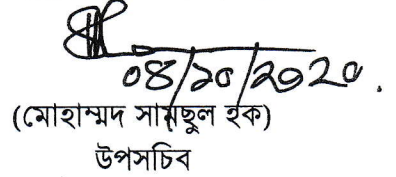 ০৪/১০/২০২০.
(মোহাম্মদ সামছুল হক)
উপসচিব